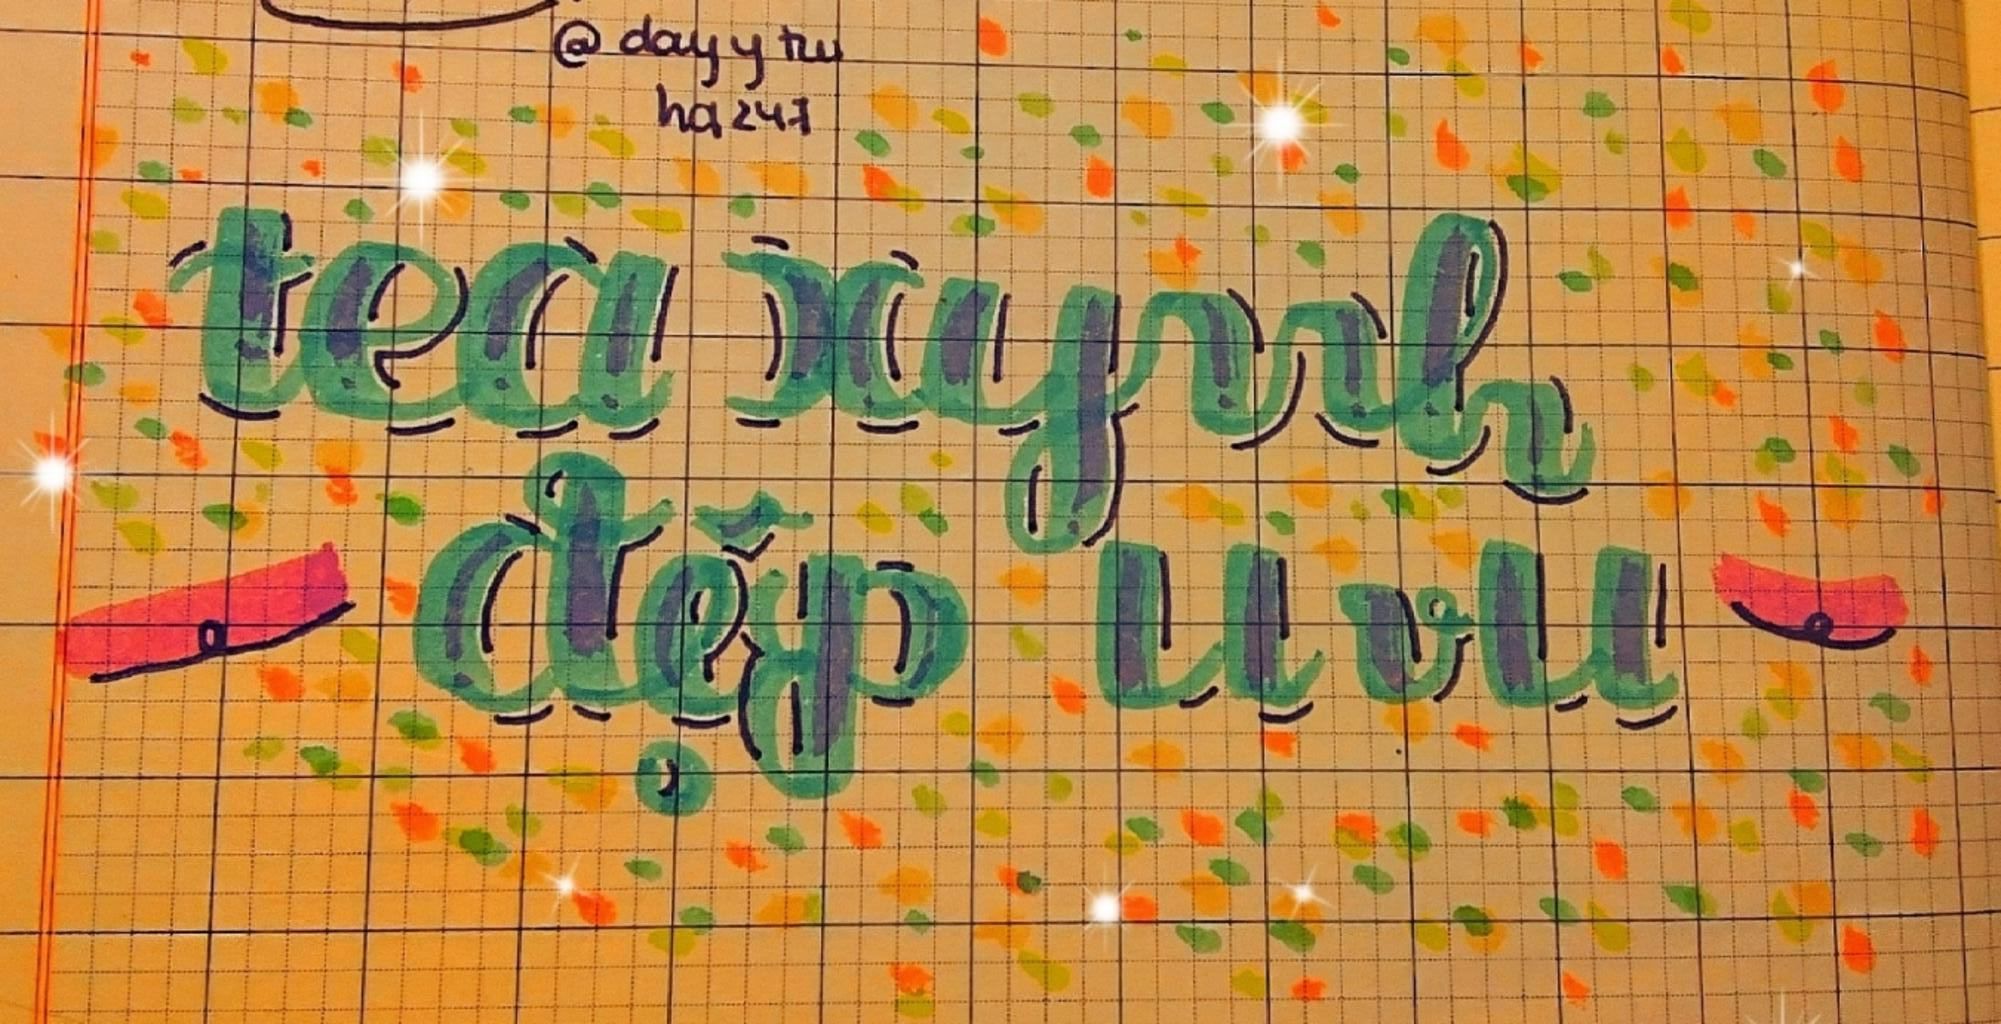 @ dayy tru
ha247
tea xynh
đẹp uvu